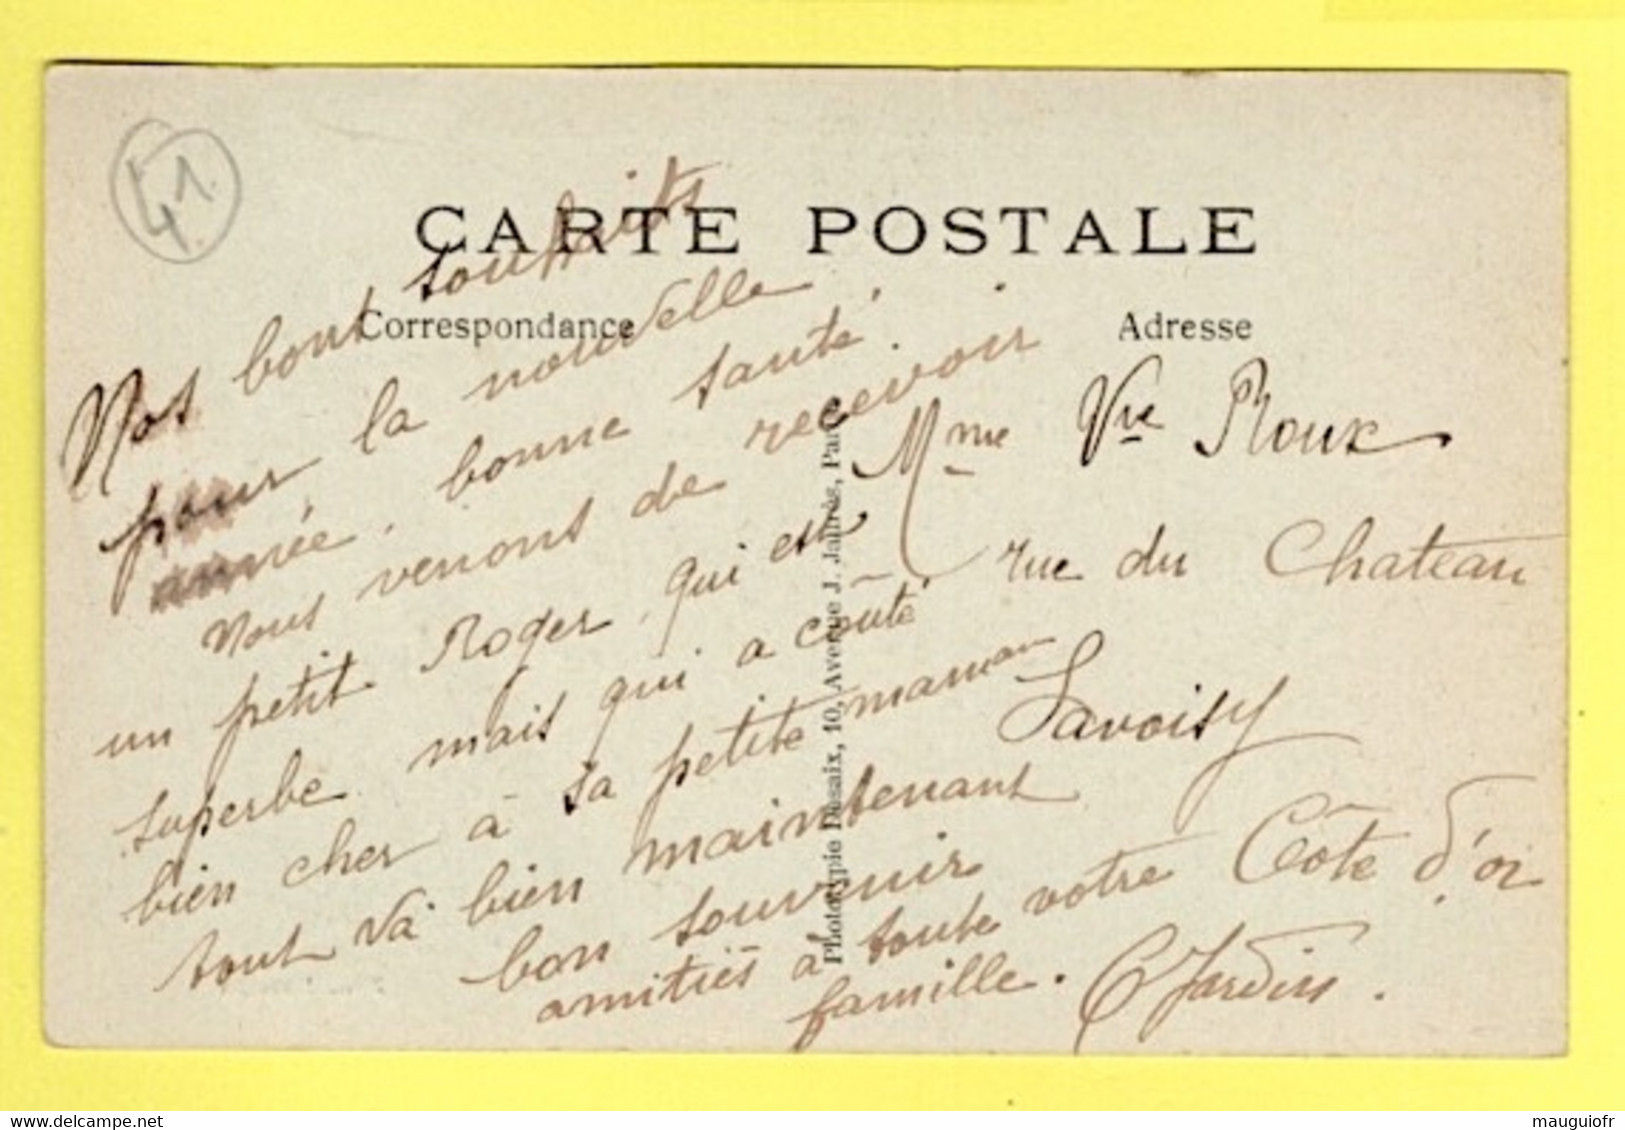 41.
CARTE POSTALE
Correspondance
Adresse
Nos bons souhaits
pour la nouvelle
année, bonne santé.
Nous venons de recevoir
un petit Roger, qui est
superbe mais qui a coûté
bien cher à sa petite maman
tout va bien maintenant
bon souvenir
amitiés à toute votre
famille. Jardin.
Mme Vve Roux
rue du Chateau
Savoisy
Côte d'or
Phototypie Desaix, 10, Avenue J. Jaurès, Paris
mauguiofr